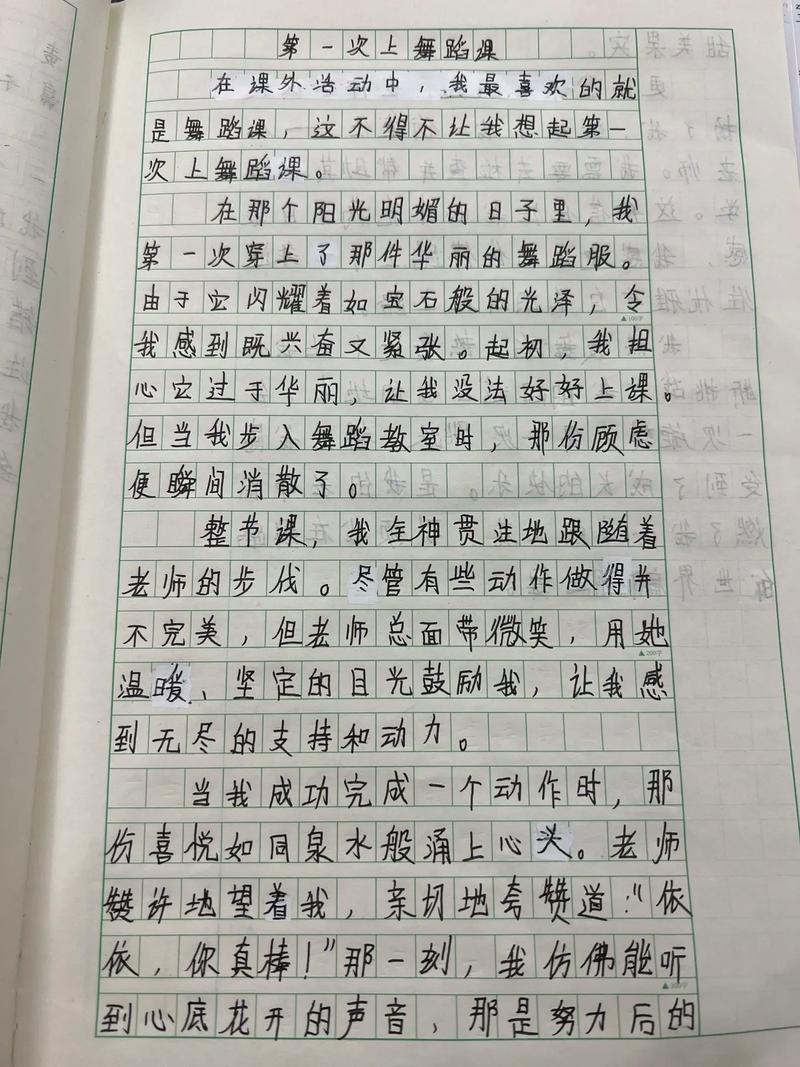 第一次上舞蹈课
在课外活动中，我最喜欢的就
是舞蹈课，这不得不让我想起第一
次上舞蹈课。
在那个阳光明媚的日子里，我
第一次穿上了那件华丽的舞蹈服。
由于它闪耀着如宝石般的光泽，令
▲100字
我感到既兴奋又紧张。起初，我担
心它过于华丽，让我没法好好上课。
但当我步入舞蹈教室时，那份顾虑
便瞬间消散了。
整节课，我全神贯注地跟随着
老师的步伐。尽管有些动作做得并
不完美，但老师总面带微笑，用她
▲200字
温暖、坚定的目光鼓励我，让我感
到无尽的支持和动力。
当我成功完成一个动作时，那
份喜悦如同泉水般涌上心头。老师
赞许地望着我，亲切地夸赞道：“依
依，你真棒！”那一刻，我仿佛能听
▲300字
到心底花开的声音，那是努力后的